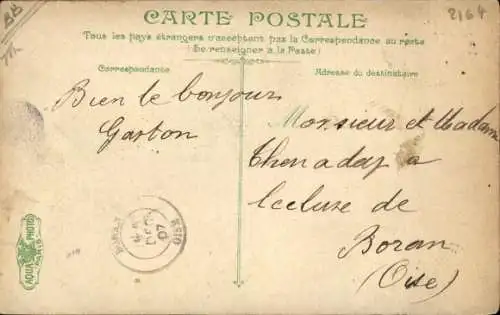 CARTE POSTALE
Tous les pays étrangers n'acceptent pas la Correspondance au recto
(Se renseigner à la Poste)
Correspondance
Adresse du destinataire
2164
BB
Bien le bonjour
Gaston
Monsieur et Madam
Thenaday a
lecluse de
Boran
(Oise)
OISE
07
AQUA PHOTO
PARIS